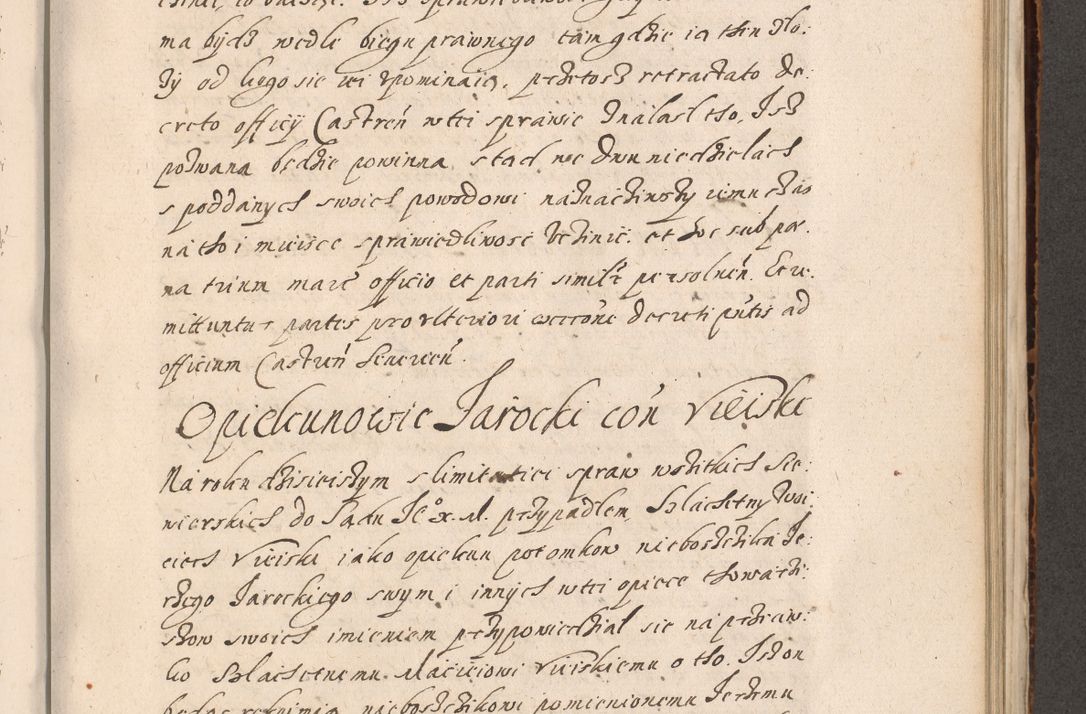 ma bydz wedle biegu prawnego tam gdzie ią thin Zło:
zy od kogo sie iei vpominaią. przetosz retractato de:
creto officÿ Castreń w tei sprawie Znalasl tho. Isz
pozwana będzie powinna stad we dwu niedzielach
s poddanych swoich powodowi naznaczinszy iemu czas
na tho i mieisce sprawiedliwosć vczinić. et hoc sub poe:
na trium marć officio et parti similr persolueń. Et re:
mittuntur partes pro vlteriori exeene decreti pńtis ad
officium Castreń Seuerień.
Opiekunowie Jarocki coń Vieiski
Na roku dzisieiszym s limitatiei spraw wszitkich Sie:
wierskich do Sadu JE° X. M. przypadlem Szlachetny Woi:
ciech Vieiski iako opiekun potomkow nieboszczika Je:
rzego Jarockiego swym i innych w tei opiece thowarzi:
szow swoich imieniem przypowiedzial sie na przeciw:
ko Szlachetnemu Maciciowi Vieiskiemu o tho. Isz on
nieboszczikowi pomienionemu Jerzemu